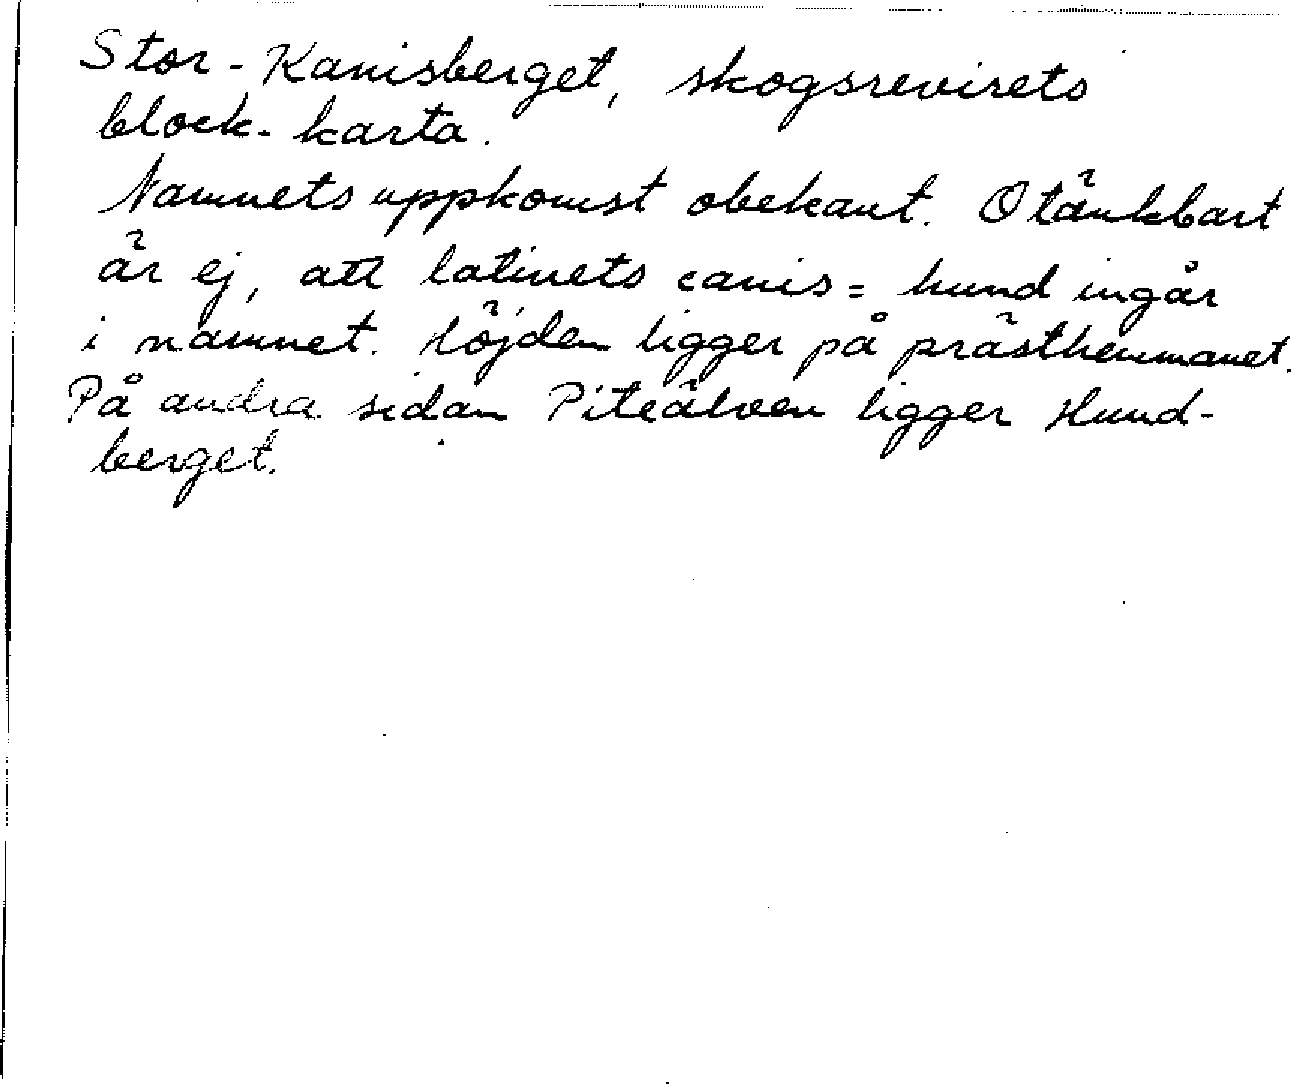 Stor-Kanisberget, skogsrevirets
block-karta.
Namnets uppkomst obekant. Otänkbart
är ej, att latinets canis = hund ingår
i namnet. Höjden ligger på prästhemmanet.
På andra sidan Piteälven ligger Hund-
berget.